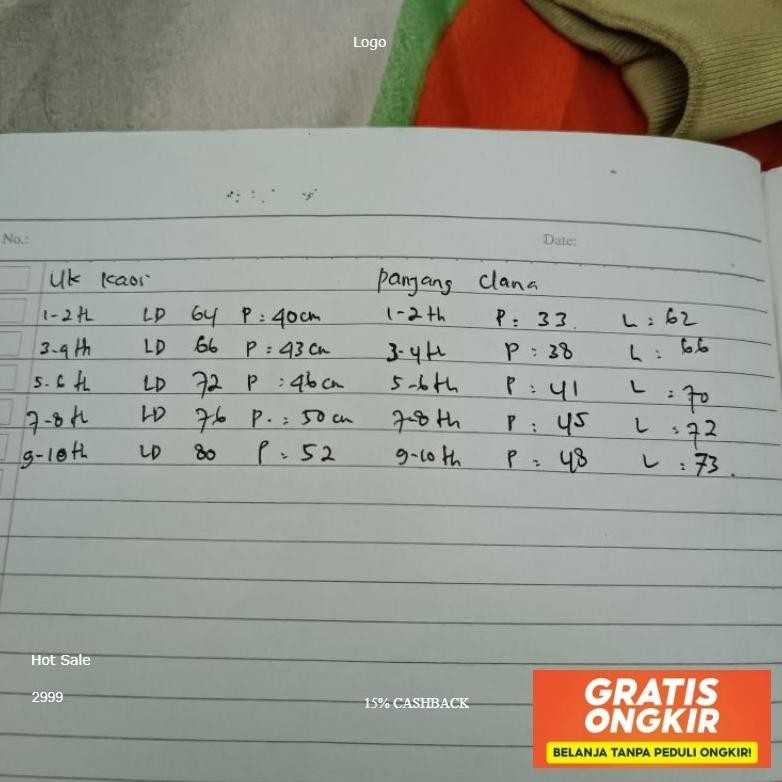 Logo
No.:
Date:
Uk kaos
panjang Clana
1-2 th LD 64 P : 40 cm
1-2 th P : 33. L : 62
3-4 th LD 66 P : 43 cm
3-4 th P : 38 L : 66
5-6 th LD 72 P : 46 cm
5-6 th P : 41 L : 70
7-8 th LD 76 P. : 50 cm
7-8 th P : 45 L : 72
9-10 th LD 80 P : 52
9-10 th P : 48 L : 73.
Hot Sale
2999
15% CASHBACK
GRATIS
ONGKIR
BELANJA TANPA PEDULI ONGKIR!